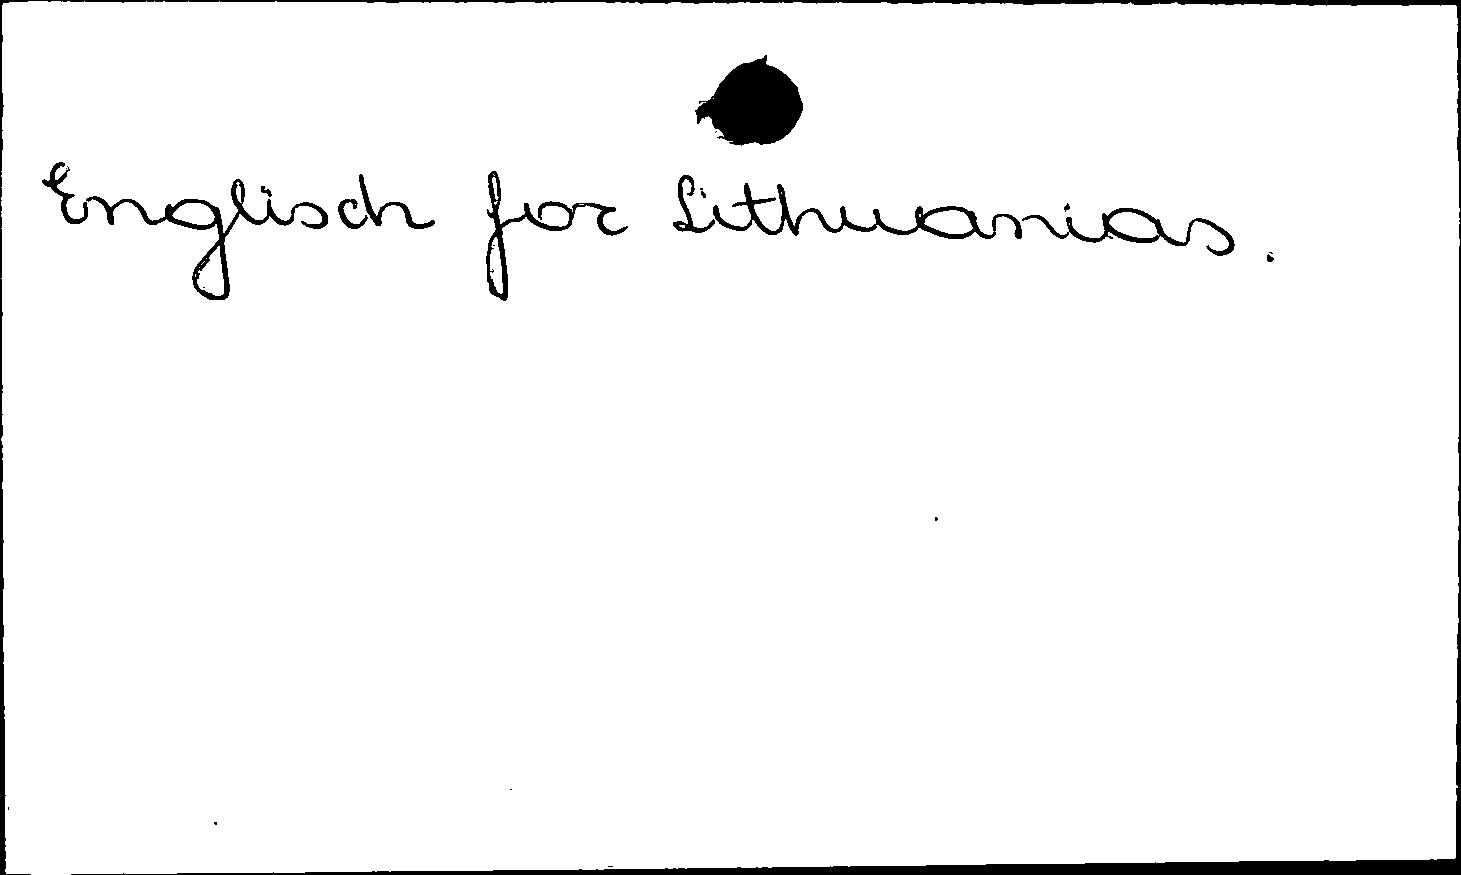 Englisch for Lithuanias.